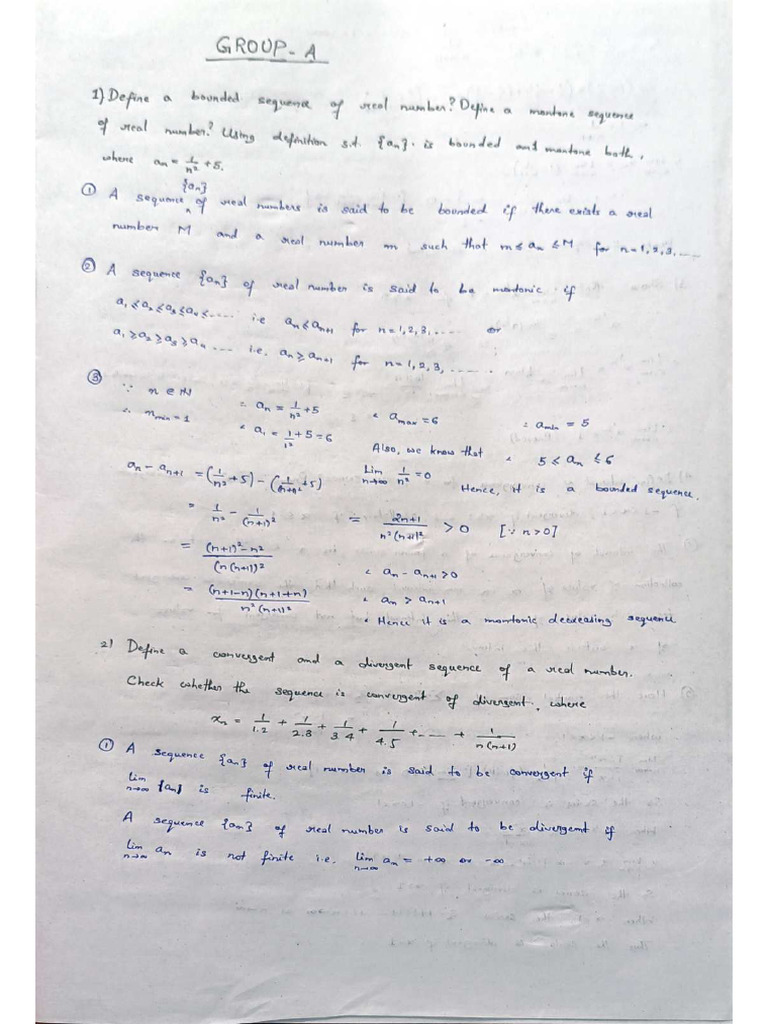 GROUP - A
1) Define a bounded sequence of real number? Define a montone sequence
of real number? Using definition s.t. {an} is bounded and montone both,
where an = 1/n² + 5.
① A sequence {an} of real numbers is said to be bounded if there exists a real
number M and a real number m such that m ≤ an ≤ M for n = 1, 2, 3, .....
② A sequence {an} of real number is said to be montonic if
a1 ≤ a2 ≤ a3 ≤ a4 ≤ ..... i.e an ≤ an+1 for n = 1, 2, 3, ..... or
a1 ≥ a2 ≥ a3 ≥ an ..... i.e. an ≥ an+1 for n = 1, 2, 3, ..... .
③ ∵ n ∈ N ∴ an = 1/n² + 5 ∴ amax = 6 ∴ amin = 5
∴ nmin = 1 ∴ a1 = 1/1² + 5 = 6 Also, we know that ∴ 5 ≤ an ≤ 6
an - an+1 = (1/n² + 5) - (1/(n+1)² + 5) Lim n→∞ 1/n² = 0 Hence, it is a bounded sequence.
= 1/n² - 1/(n+1)² = 2n+1/n²(n+1)² > 0 [∵ n > 0]
= (n+1)² - n²/(n(n+1))² ∴ an - an+1 > 0
= (n+1-n)(n+1+n)/n²(n+1)² ∴ an > an+1
∴ Hence it is a montonic decreasing sequence
2) Define a convergent and a divergent sequence of a real number.
Check whether the sequence is convergent of divergent, where
xn = 1/1.2 + 1/2.3 + 1/3.4 + 1/4.5 + ..... + 1/n(n+1)
① A sequence {an} of real number is said to be convergent if
lim n→∞ {an} is finite.
A sequence {an} of real number is said to be divergent if
Lim n→∞ an is not finite i.e. lim n→∞ an = +∞ or -∞